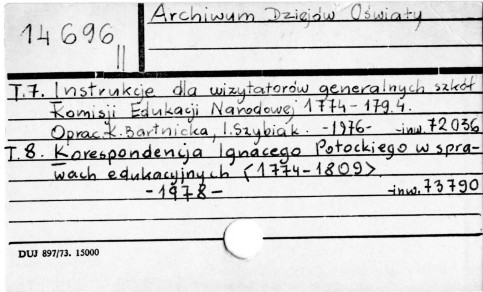 Archiwum Dziejów Oświaty
14 696
II
T.7. Instrukcje dla wizytatorów generalnych szkół
Komisji Edukacji Narodowej 1774-1794.
Oprac. K. Bartnicka, I. Szybiak. -1976- -inw. 72036
T.8. Korespondencja Ignacego Potockiego w spra-
wach edukacyjnych <1774-1809>.
-1978- -inw. 73790
DUJ 897/73. 15000